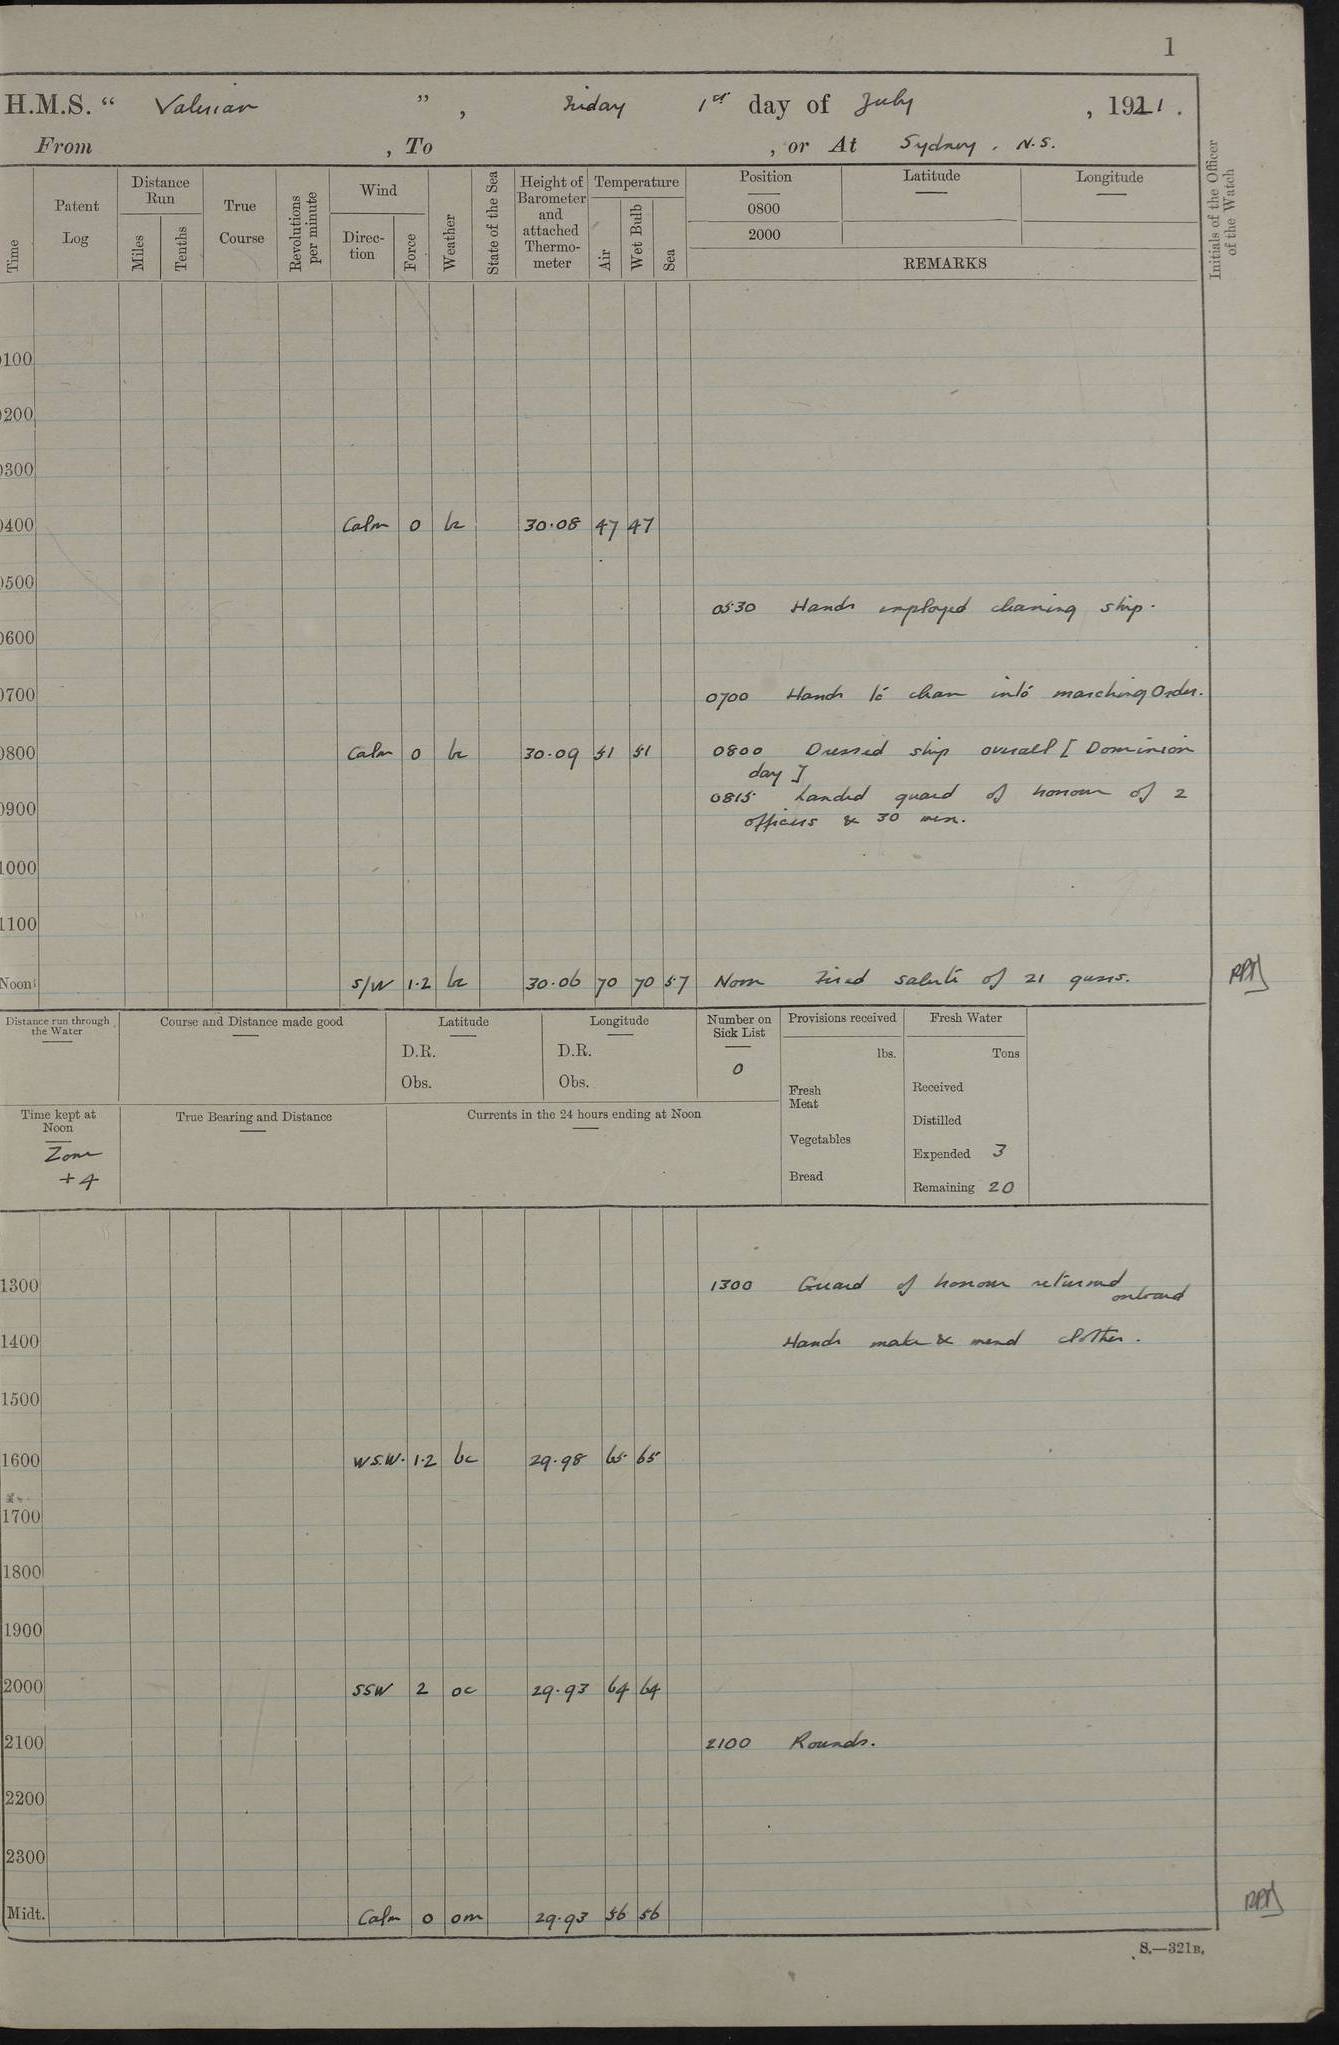 1
H.M.S. “ Valerian ” , Friday 1st day of July , 1921 .
From , To , or At Sydney . N.S.
Time
Patent Log
Distance Run
Miles
Tenths
True Course
Revolutions per minute
Wind
Direc-tion
Force
Weather
State of the Sea
Height of Barometer and attached Thermo-meter
Temperature
Air
Wet Bulb
Sea
Position
0800
2000
Latitude
Longitude
REMARKS
Initials of the Officer of the Watch
0100
0200
0300
0400 Calm 0 bc 30.08 47 47
0500
0530 Hands employed cleaning ship.
0600
0700 0700 Hands to clean into marching Order.
0800 Calm 0 bc 30.09 51 51 0800 Dressed ship overall [ Dominion
day ]
0815 Landed guard of honour of 2
0900
officers & 30 men.
1000
1100
Noon S/W 1.2 bc 30.06 70 70 57 Noon Fired salute of 21 guns.
Distance run through the Water
Course and Distance made good
Latitude
D.R.
Obs.
Longitude
D.R.
Obs.
Number on Sick List
0
Provisions received
lbs.
Fresh Meat
Vegetables
Bread
Fresh Water
Tons
Received
Distilled
Expended 3
Remaining 20
Time kept at Noon
Zone
+4
True Bearing and Distance
Currents in the 24 hours ending at Noon
1300 1300 Guard of honour returned
onboard
1400 Hands make & mend clothes.
1500
1600 W.S.W. 1.2 bc 29.98 65 65
1700
1800
1900
2000 SSW 2 oc 29.93 64 64
2100 2100 Rounds.
2200
2300
Midt. Calm 0 om 29.93 56 56
S.—321B.